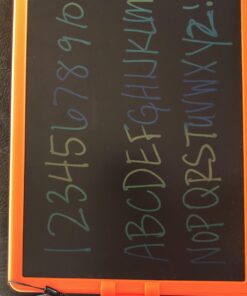 12345678910
ABCDEFGHIJKLM
NOPQRSTUVWXYZ!